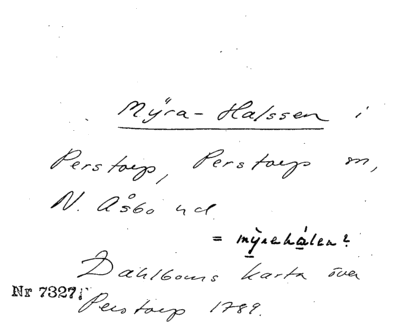 Mÿra-Halssen i
Perstorp, Perstorp sn,
N. Åsbo hd
= mÿrehålen?
Dahlboms karta över
Nr 7327.
Perstorp 1789.